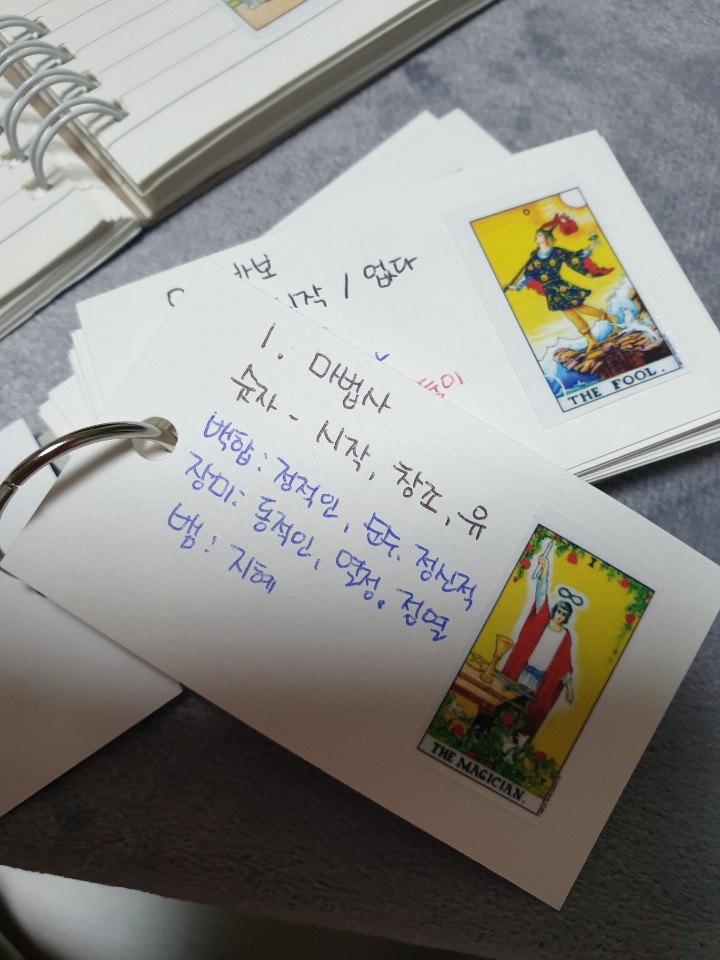 바보
시작 / 없다
THE FOOL.
1. 마법사
숫자 - 시작, 창조, 유
백합: 정적인, 순수. 정신적
장미: 동적인, 열정, 정열
뱀: 지혜
I
THE MAGICIAN.